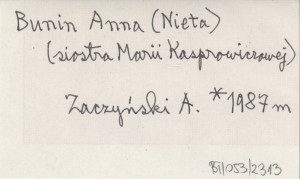 Bunin Anna (Nieta)
(siostra Marii Kasprowiczowej)
Zaczyński A. *1987 m
BT/053/2313